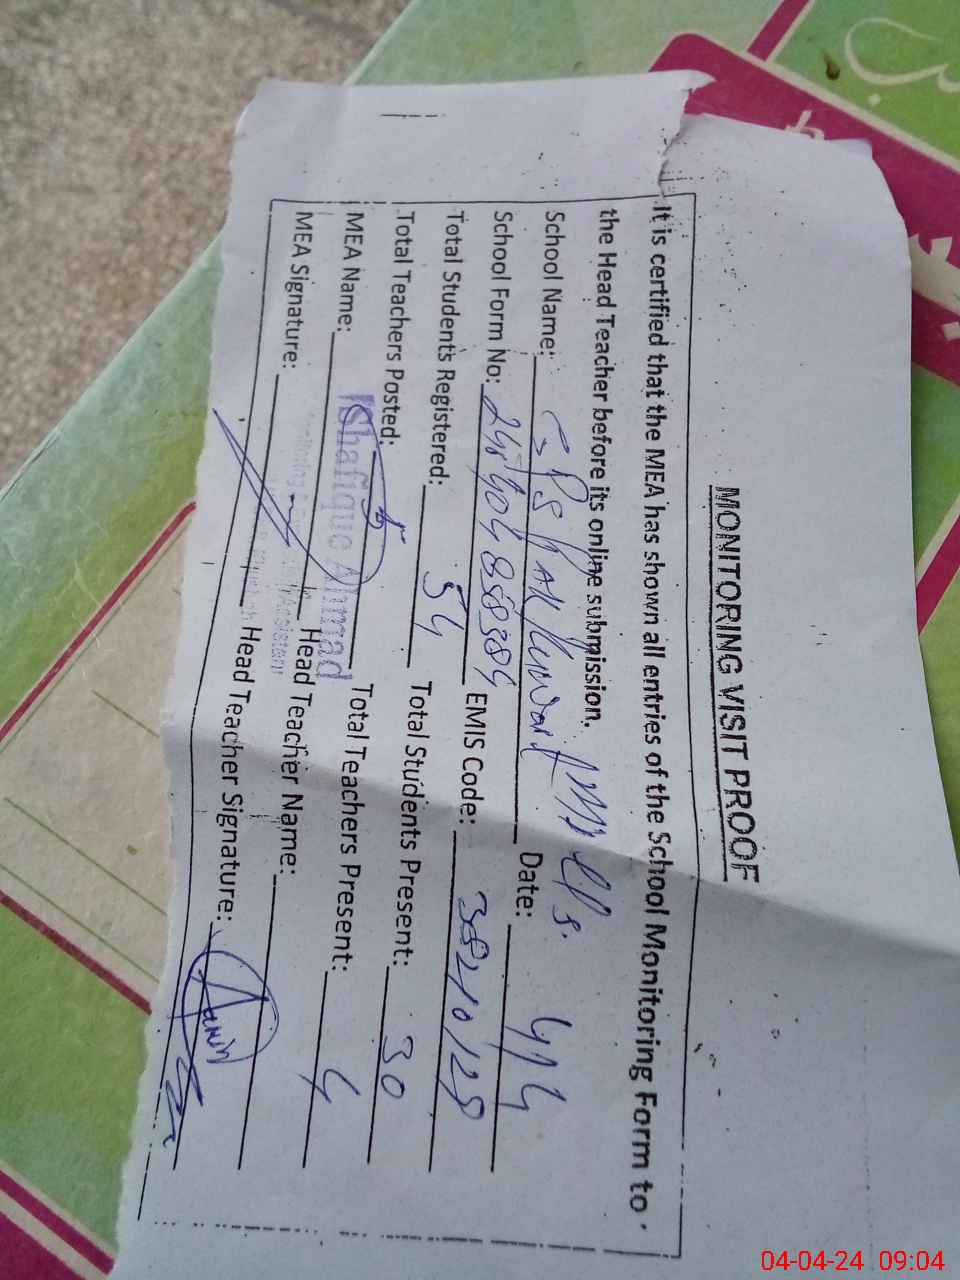 MONITORING VISIT PROOF
It is certified that the MEA has shown all entries of the School Monitoring Form to
the Head Teacher before its online submission.
School Name: Date: 4/4
School Form No: EMIS Code: 38210128
Total Students Registered: 54 Total Students Present: 30
Total Teachers Posted: 5 Total Teachers Present: 4
MEA Name: Shafique Ahmad Head Teacher Name:
MEA Signature: Head Teacher Signature:
04-04-24 09:04